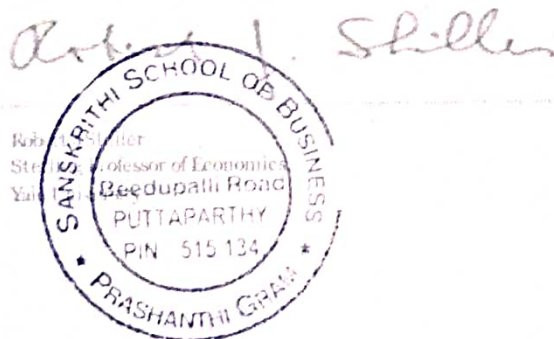 Robert J. Shiller
Robert Shiller
Sterling Professor of Economics
Yale University
SANSKRITHI SCHOOL OF BUSINESS
Beedupalli Road
PUTTAPARTHY
PIN 515 134
* PRASHANTHI GRAM *